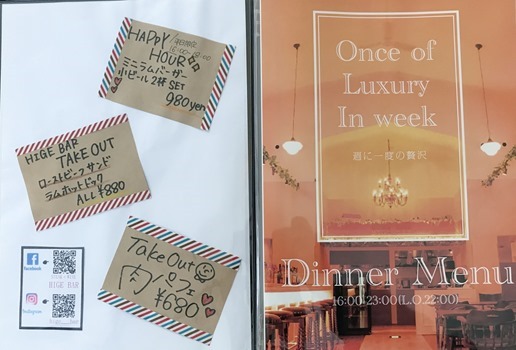 HAPPY
HOUR
ミニラムバーガー
小ビール2杯 SET
980yen
HIGE BAR
TAKE OUT
ローストビーフサンド
ラムホットドック
ALL ¥880
Take Out
肉パフェ
¥680
facebook
HIGE BAR
Instagram
Once of
Luxury
In week
週に一度の贅沢
Dinner Menu
16:00-23:00(L.O.22:00)